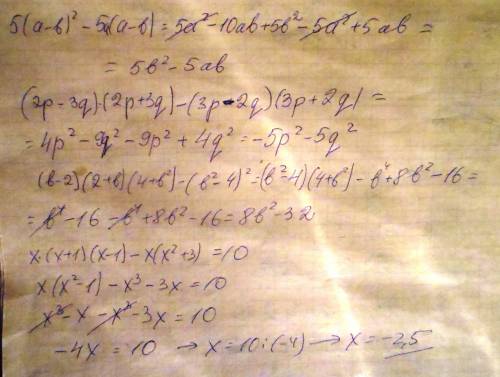 5(a-b)² - 5a(a-b) = 5a² - 10ab + 5b² - 5a² + 5ab =
= 5b² - 5ab
(2p-3q)·(2p+3q) - (3p-2q)(3p+2q) =
= 4p² - 9q² - 9p² + 4q² = -5p² - 5q²
(b-2)(2+b)(4+b²) - (b²-4)² = (b²-4)(4+b²) - b⁴ + 8b² - 16 =
= b⁴ - 16 - b⁴ + 8b² - 16 = 8b² - 32
x·(x+1)(x-1) - x(x²+3) = 10
x(x²-1) - x³ - 3x = 10
x³ - x - x³ - 3x = 10
-4x = 10 → x = 10:(-4) → x = -2,5